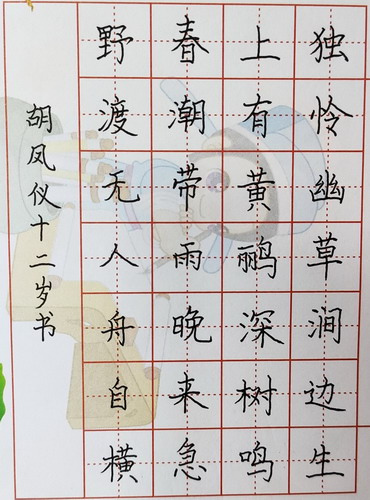 独怜幽草涧边生
上有黄鹂深树鸣
春潮带雨晚来急
野渡无人舟自横
胡凤仪十二岁书